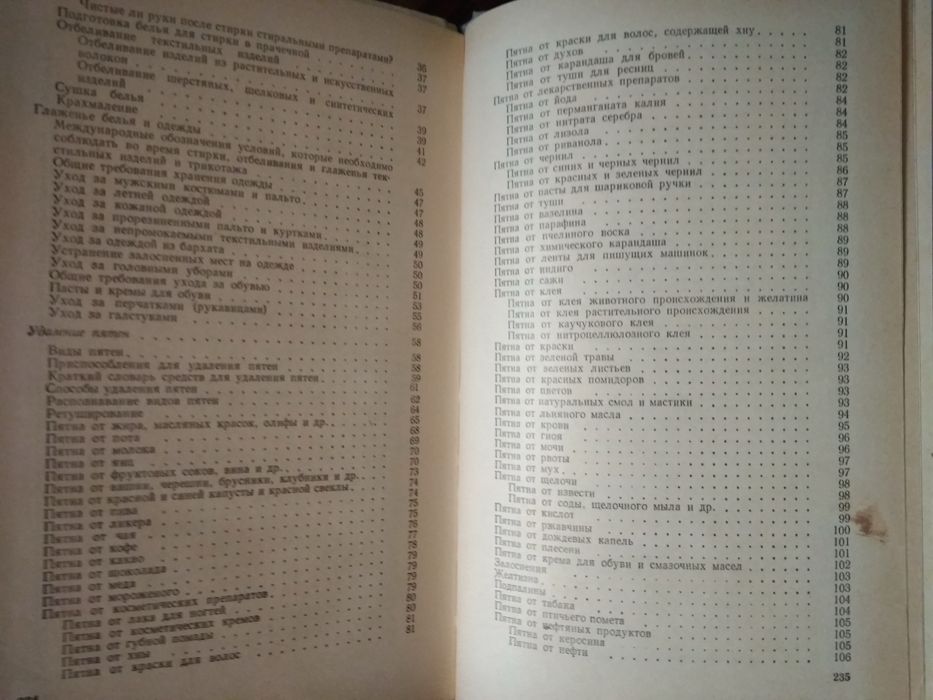 Чистые ли руки после стирки стиральными препаратами?
Подготовка белья для стирки в прачечной 36
Отбеливание текстильных изделий 37
Отбеливание изделий из растительных и искусственных
волокон 37
Отбеливание шерстяных, шелковых и синтетических
изделий 37
Сушка белья
Крахмаление 39
Глаженье белья и одежды 39
Международные обозначения условий, которые необходимо 41
соблюдать во время стирки, отбеливания и глаженья тек- 42
стильных изделий и трикотажа
Общие требования хранения одежды 45
Уход за мужскими костюмами и пальто 47
Уход за летней одеждой 47
Уход за кожаной одеждой 48
Уход за прорезиненными пальто и куртками 48
Уход за непромокаемыми текстильными изделиями 49
Уход за одеждой из бархата 50
Устранение залосненных мест на одежде 50
Уход за головными уборами 50
Общие требования ухода за обувью 51
Пасты и кремы для обуви 53
Уход за перчатками (рукавицами) 55
Уход за галстуками 56
Удаление пятен 58
Виды пятен 58
Приспособления для удаления пятен 58
Краткий словарь средств для удаления пятен 59
Способы удаления пятен 61
Распознавание видов пятен 62
Ретуширование 64
Пятна от жира, масляных красок, олифы и др. 65
Пятна от пота 68
Пятна от молока 69
Пятна от яиц 70
Пятна от фруктовых соков, вина и др. 70
Пятна от вишни, черешни, брусники, клубники и др. 73
Пятна от красной и синей капусты и красной свеклы 74
Пятна от пива 74
Пятна от ликера 75
Пятна от чая 75
Пятна от кофе 76
Пятна от какао 77
Пятна от шоколада 78
Пятна от меда 79
Пятна от мороженого 79
Пятна от косметических препаратов 79
Пятна от лака для ногтей 80
Пятна от косметических кремов 80
Пятна от губной помады 81
Пятна от хны 81
Пятна от краски для волос
Пятна от краски для волос, содержащей хну 81
Пятна от духов 81
Пятна от карандаша для бровей 82
Пятна от туши для ресниц 82
Пятна от лекарственных препаратов 82
Пятна от йода 82
Пятна от перманганата калия 84
Пятна от нитрата серебра 84
Пятна от лизола 84
Пятна от риванола 85
Пятна от чернил 85
Пятна от синих и черных чернил 85
Пятна от красных и зеленых чернил 86
Пятна от пасты для шариковой ручки 87
Пятна от туши 87
Пятна от вазелина 88
Пятна от парафина 88
Пятна от пчелиного воска 88
Пятна от химического карандаша 89
Пятна от ленты для пишущих машинок 89
Пятна от индиго 89
Пятна от сажи 90
Пятна от клея 90
Пятна от клея животного происхождения и желатина 90
Пятна от клея растительного происхождения 91
Пятна от каучукового клея 91
Пятна от нитроцеллюлозного клея 91
Пятна от краски 91
Пятна от зеленой травы 92
Пятна от зеленых листьев 93
Пятна от красных помидоров 93
Пятна от цветов 93
Пятна от натуральных смол и мастики 93
Пятна от льняного масла 94
Пятна от крови 95
Пятна от гноя 96
Пятна от мочи 96
Пятна от рвоты 97
Пятна от мух 97
Пятна от щелочи 98
Пятна от извести 98
Пятна от соды, щелочного мыла и др. 99
Пятна от кислот 99
Пятна от ржавчины 100
Пятна от дождевых капель 101
Пятна от плесени 101
Пятна от крема для обуви и смазочных масел 102
Залоснения 103
Желтизна 103
Подпалины 104
Пятна от табака 104
Пятна от птичьего помета 105
Пятна от нефтяных продуктов 105
Пятна от керосина 105
Пятна от нефти 106
235